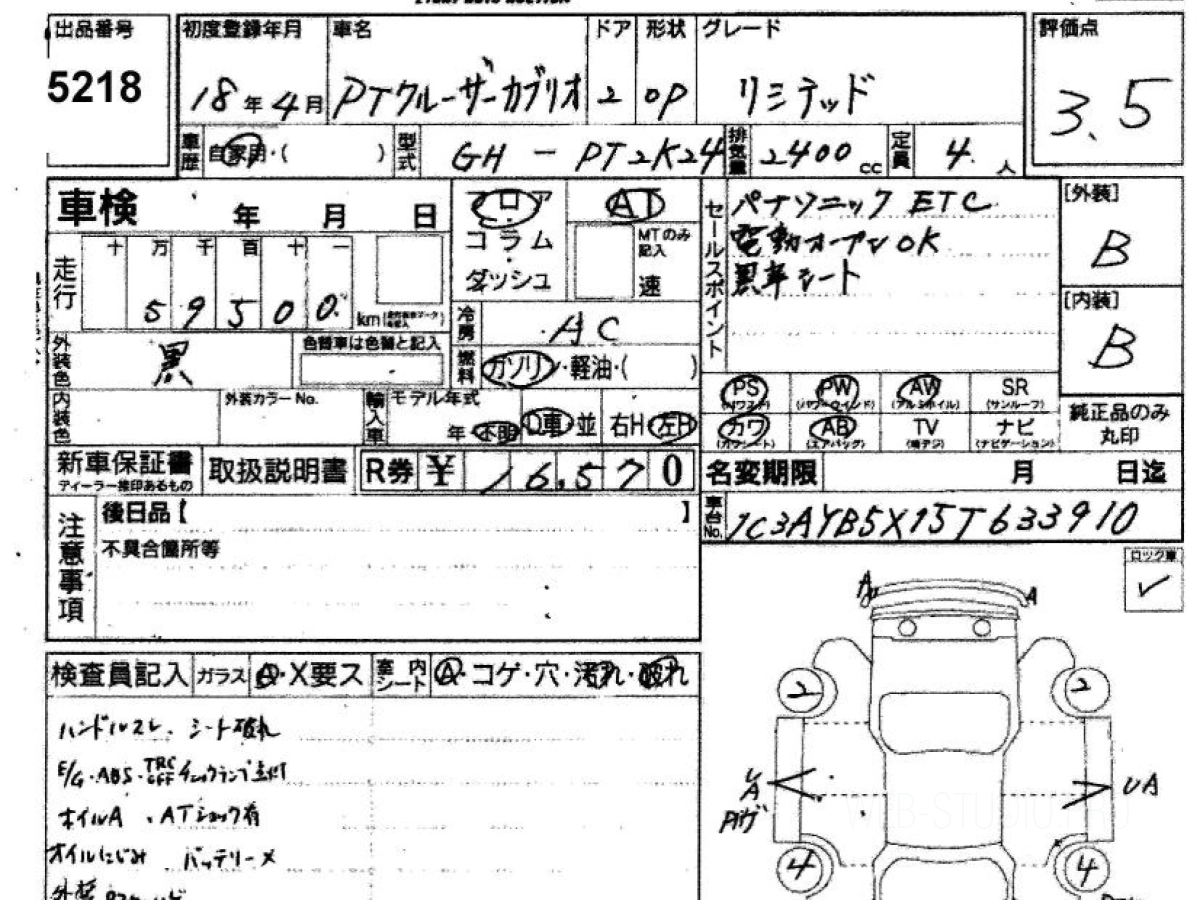 出品番号
5218
初度登録年月
18年4月
車名
PTクルーザーカブリオ
ドア
2
形状
OP
グレード
リミテッド
評価点
3.5
車歴
自家用・( )
型式
GH - PT2K24
排気量
2400 cc
定員
4人
車検 年 月 日
走行
十 万 千 百 十 一
5 9 5 0 0 km
フロア
コラム
ダッシュ
AT
MTのみ
記入
速
冷房
AC
燃料
ガソリン・軽油・( )
セールスポイント
パナソニック ETC
電動オープンOK
黒革シート
[外装]
B
[内装]
B
外装色
黒
色替車は色替と記入
内装色
外装カラー No.
輸入車
モデル年式
年・不明
D車・並
右H・左H
PS PW AW SR
(パワステ) (パワーウインド) (アルミホイル) (サンルーフ)
カワ AB TV ナビ
(カワシート) (エアバッグ) (地デジ) (ナビゲーション)
純正品のみ
丸印
新車保証書
ディーラー捺印あるもの
取扱説明書
R券 ¥ 16,570
名変期限 月 日迄
車台No.
1C3AYB5X15T633910
注意事項
後日品【 】
不具合箇所等
ロック車
✓
検査員記入
ガラス
A・X要ス
室内シート
A・コゲ・穴・汚れ・破れ
ハンドルスレ、シート破れ
E/G・ABS・TRC OFF チェックランプ点灯
オイルA、ATショック有
オイルにじみ バッテリーメ
A
2
2
UA
4
4